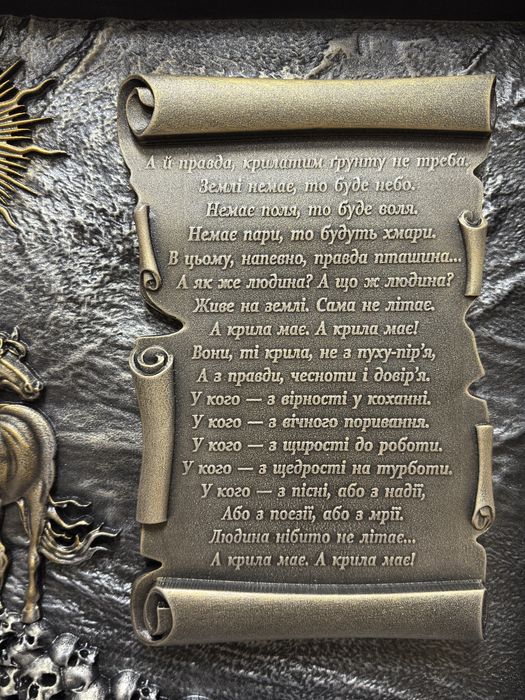 А й правда, крилатим ґрунту не треба.
Землі немає, то буде небо.
Немає поля, то буде воля.
Немає пари, то будуть хмари.
В цьому, напевно, правда пташина...
А як же людина? А що ж людина?
Живе на землі. Сама не літає.
А крила має. А крила має!
Вони, ті крила, не з пуху-пір'я,
А з правди, чесноти і довір'я.
У кого — з вірності у коханні.
У кого — з вічного поривання.
У кого — з щирості до роботи.
У кого — з щедрості на турботи.
У кого — з пісні, або з надії,
Або з поезії, або з мрії.
Людина нібито не літає...
А крила має. А крила має!